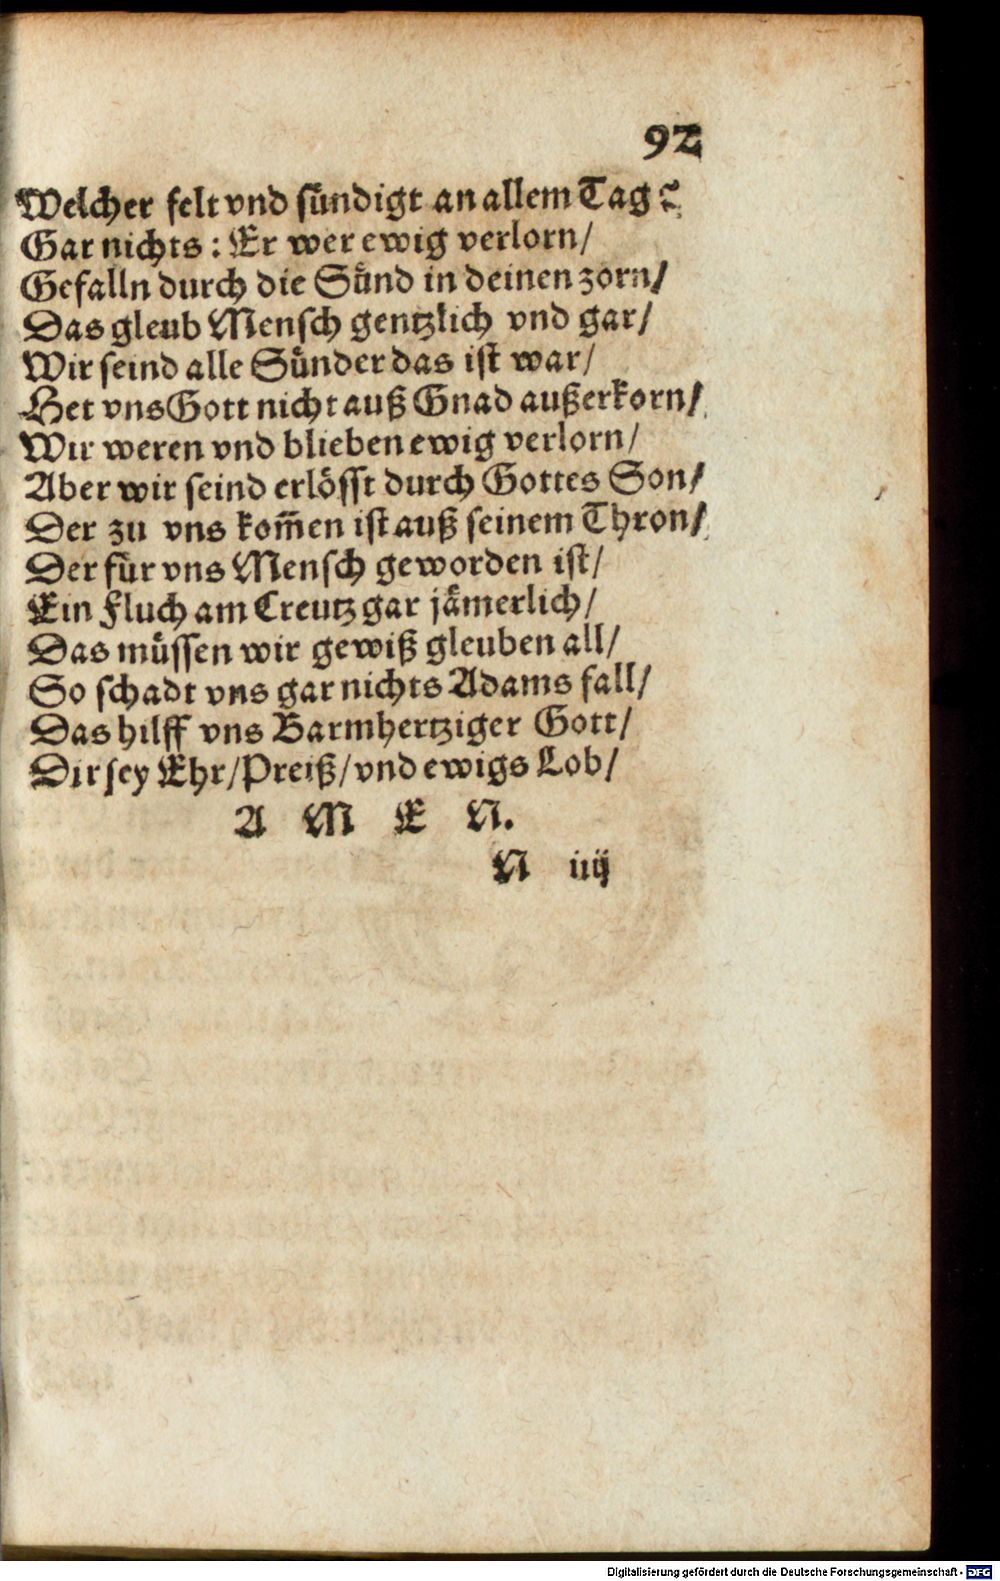 92
Welcher felt vnd sündigt an allem Tag?
Gar nichts: Er wer ewig verlorn/
Gefalln durch die Sünd in deinen zorn/
Das gleub Mensch gentzlich vnd gar/
Wir seind alle Sünder das ist war/
Het vns Gott nicht auß Gnad außerkorn/
Wir weren vnd blieben ewig verlorn/
Aber wir seind erlösst durch Gottes Son/
Der zu vns kom̄en ist auß seinem Thron/
Der für vns Mensch geworden ist/
Ein Fluch am Creutz gar jämerlich/
Das müssen wir gewiß gleuben all/
So schadt vns gar nichts Adams fall/
Das hilff vns Barmhertziger Gott/
Dir sey Ehr/Preiß/vnd ewigs Lob/
A M E N.
N iiij
Digitalisierung gefördert durch die Deutsche Forschungsgemeinschaft - DFG